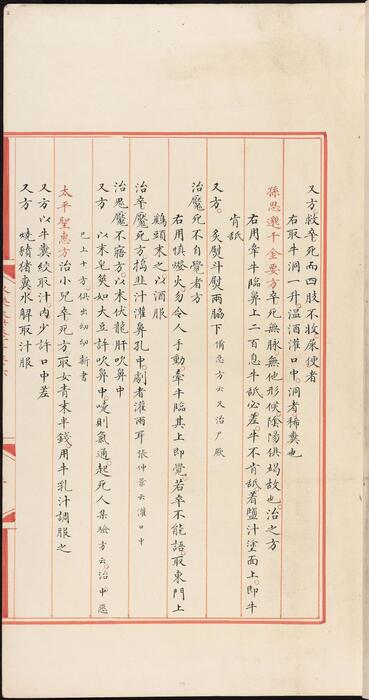 又方救卒死而四肢不收屎便者
右取牛洞一升溫酒灌口中洞者稀糞也
孫思邈千金要方卒死無脉無他形候陰陽俱竭故也治之方
右用牽牛臨鼻上二百息牛舐必差牛不肯舐着鹽汁塗面上即牛
肯舐
又方 炙熨斗熨兩脇下 備急方云又治尸厥
治魘死不自覺者方
右用慎燈火勿令人手動牽牛臨其上即覺若卒不能語取東門上
鷄頭末之以酒服
治卒魘死方搗韭汁灌鼻孔中劇者灌兩耳 張仲景云灌口中
治鬼魘不寤方以末伏龍肝吹鼻中
又方 以末皂莢如大豆許吹鼻中嚏則氣通起死人 集驗方云治中惡
已上十方俱出幼幼新書
太平聖惠方治小兒卒死方取女青末半錢用牛乳汁調服之
又方 以牛糞絞取汁內少許口中差
又方 燒豬糞水解取汁服